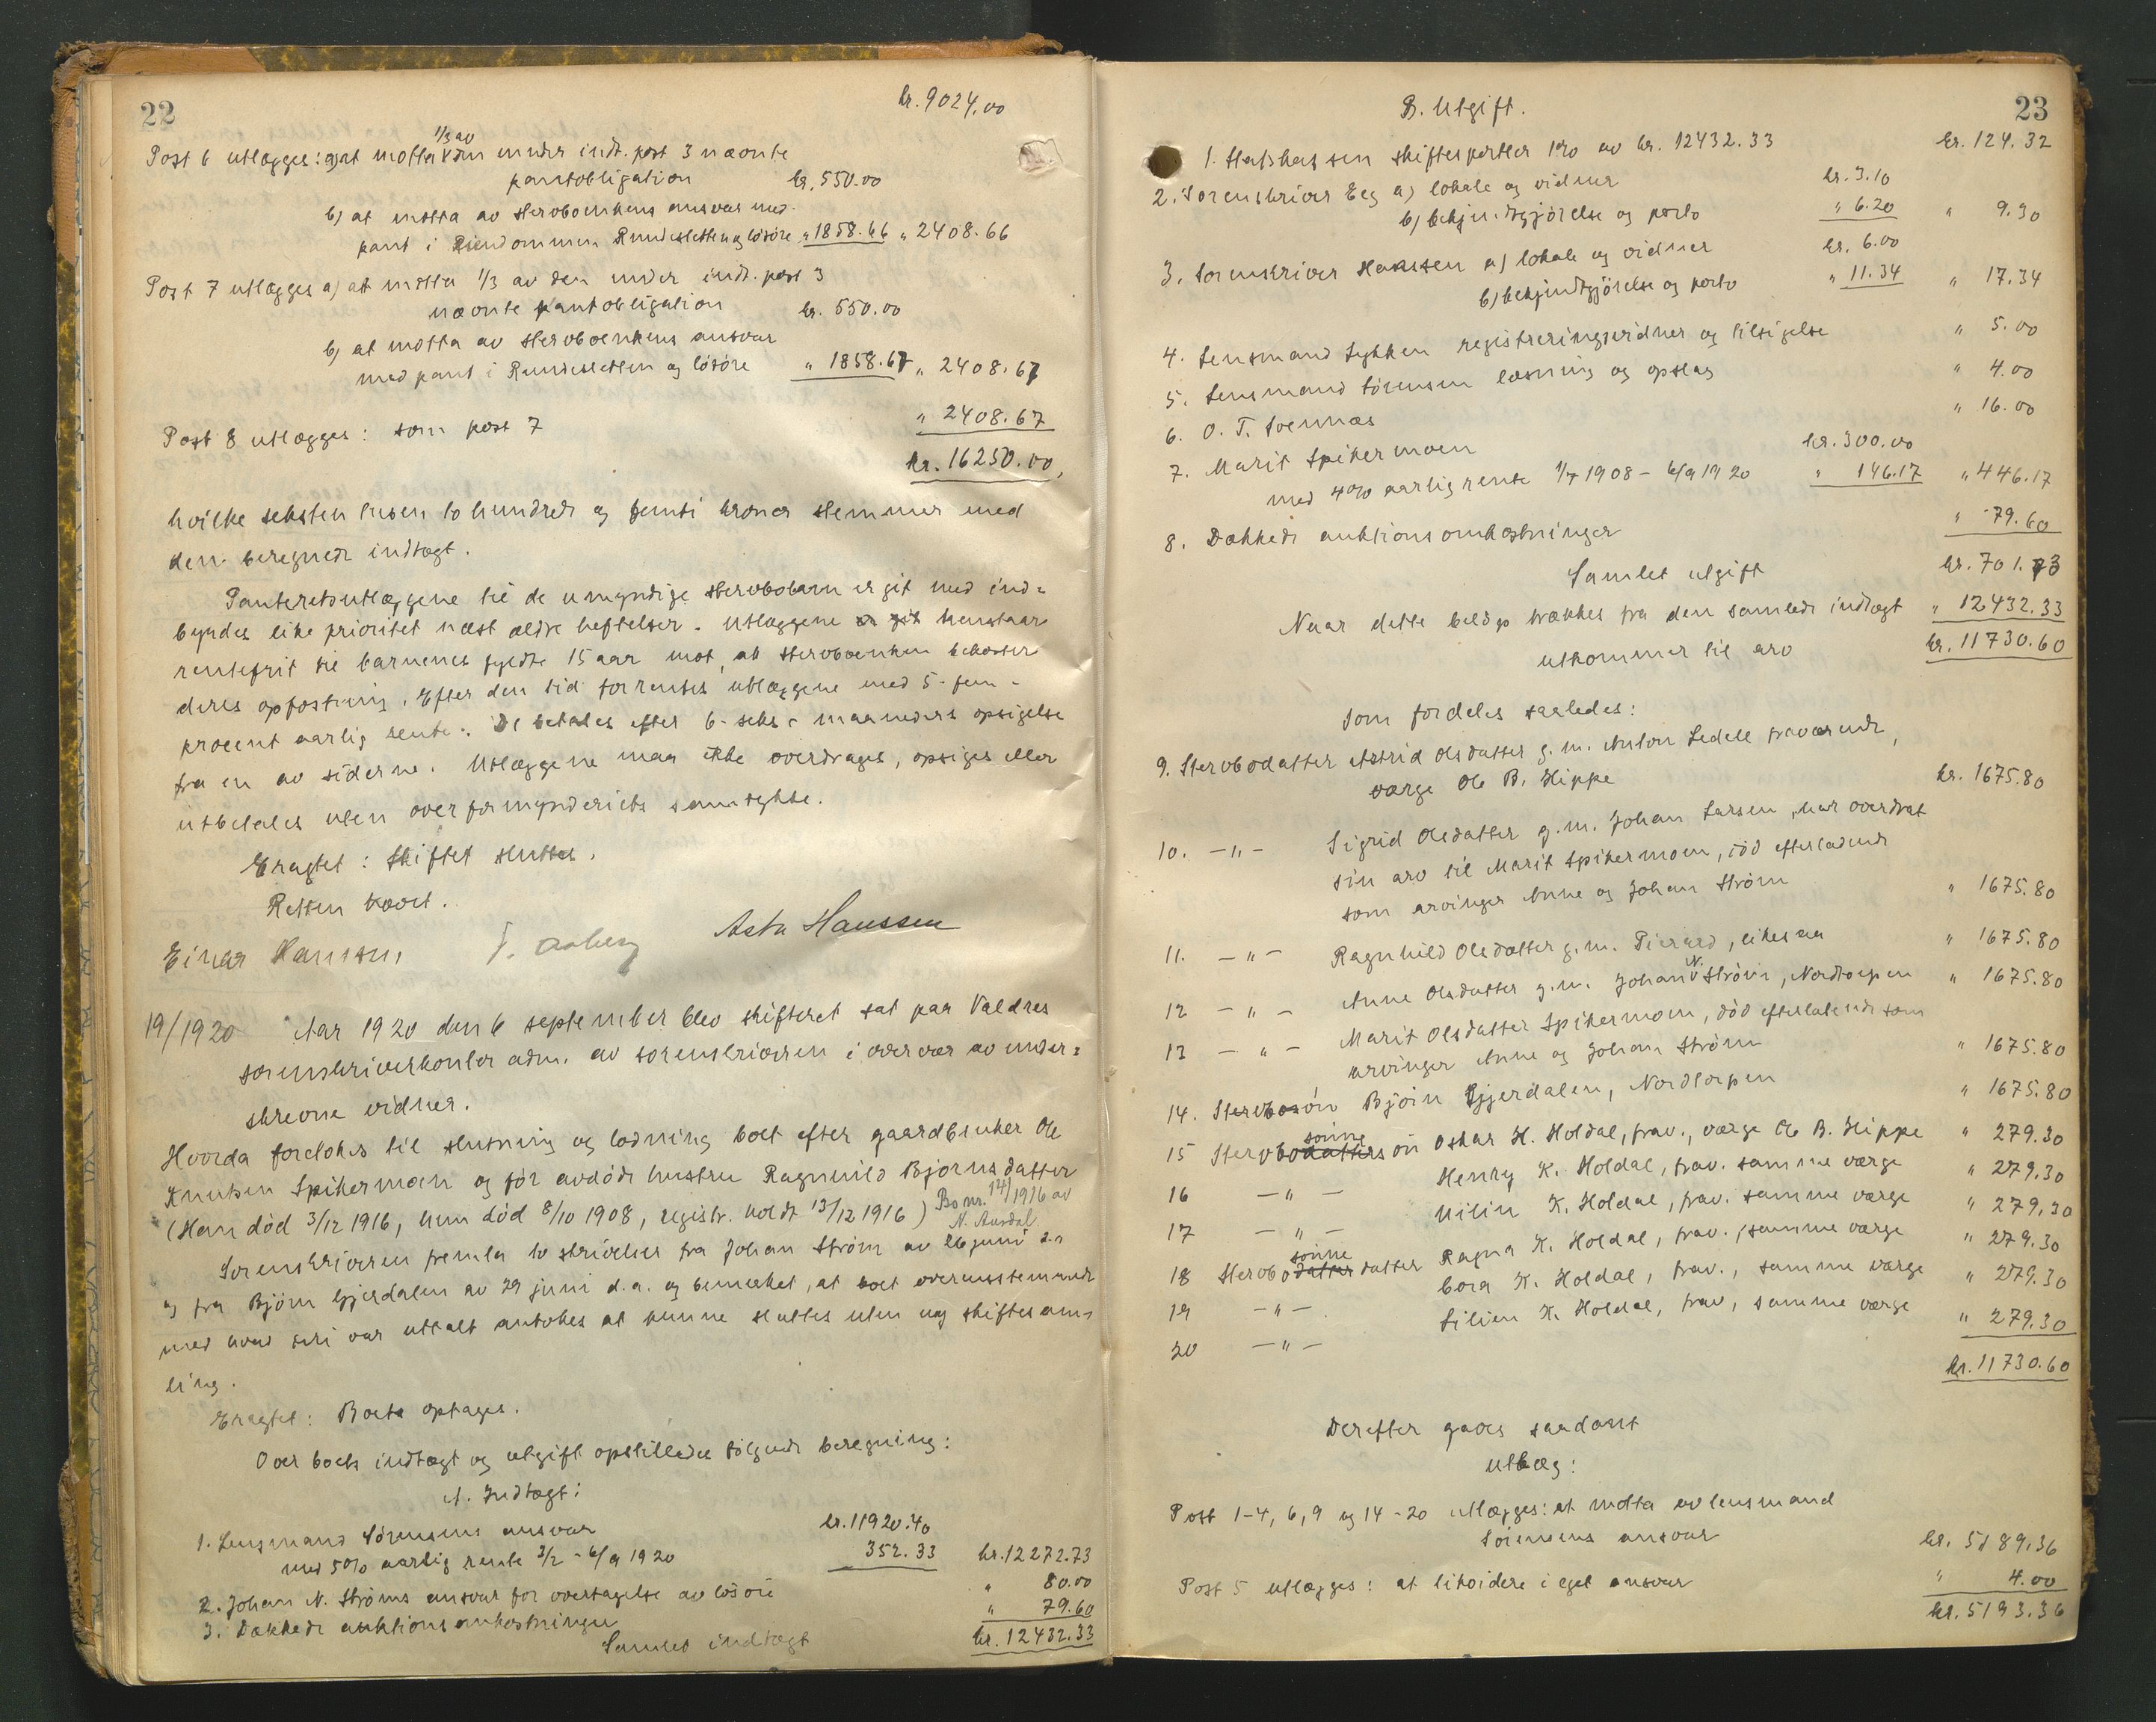 22
kr. 9024.00
Post 6 utlægges: a) at motta 1/3 av den under indt. post 3 nævnte
pantobligation kr. 550.00
b) at motta av stervboenkens ansvar med
pant i Eiendommen Rundesletten og lösöre " 1858.66 " 2408.66
Post 7 utlægges a) at motta 1/3 av den under indt. post 3
nævnte pantobligation kr. 550.00
b) at motta av stervboenkens ansvar
med pant i Rundesletten og lösöre " 1858.67 " 2408.67
Post 8 utlægges: som post 7 " 2408.67
kr. 16250.00,
hvilke seksten tusen to hundrede og femti kroner stemmer med
den beregnede indtægt.
Panteretsutlæggene til de umyndige stervbobarn er git med ind-
byrdes like prioritet næst ældre heftelser. Utlæggene er git henstaar
rentefrit til barnenes fyldte 15 aar mot, at stervboenken bekoster
deres opfostring. Efter den tid forrentes utlæggene med 5 - fem -
procent aarlig rente. De betales efter 6 - seks - maaneders opsigelse
fra en av siderne. Utlæggene maa ikke overdrages, opsiges eller
utbetales uten overformynderiets samtykke.
Eragtet: Skiftet sluttet.
Retten hævet.
Einar Hanssen, T. Aaberg Asta Hanssen
19/1920 Aar 1920 den 6 september blev skifteret sat paa Valdres
sorenskriverkontor adm. av sorenskriveren i overvær av under-
skrevne vidner.
Hvorda foretokes til slutning og lodning boet efter gaardbruker Ole
Knutsen Spikermoen og för avdöde hustru Ragnhild Bjornsdatter
(Han död 3/12 1916, hun död 8/10 1908, registr. holdt 13/12 1916) Bo nr. 14/1916 av
N. Aurdal
Sorenskriveren fremla to skrivelser fra Johan Ström av 26 juni d.a.
og fra Björn Gjerdalen av 29 juni d.a. og bemerket, at boet overensstemmende
med hvad heri var uttalt antokes at kunne sluttes uten ny skiftesam-
ling.
Eragtet: Boet optages.
Over boets indtægt og utgift opstilledes fölgende beregning:
A. Indtægt:
1. Lensmand Sörensens ansvar kr. 11920.40
med 5% aarlig rente 3/2 - 6/9 1920 352.33 kr. 12272.73
2. Johan N. Ströms ansvar for overtagelse av lösöre " 80.00
3. Dækkede auktionsomkostninger " 79.60
Samlet indtægt kr. 12432.33
23
B. Utgift.
1. Statskassen skiftesportler 1% av kr. 12432.33 kr. 124.32
2. Sorenskriver Eeg a) lokale og vidner kr. 3.10
b) bekjendtgjörelse og porto " 6.20 " 9.30
3. Sorenskriver Hanssen a) lokale og vidner kr. 6.00
b) bekjendtgjörelse og porto " 11.34 " 17.34
4. Lensmand Lykken registreringsvidner og tilsigelse " 5.00
5. Lensmand Sörensen læsning og opslag " 4.00
6. O. T. Svennæs " 16.00
7. Marit Spikermoen kr. 300.00
med 4% aarlig rente 1/7 1908 - 6/9 1920 " 146.17 " 446.17
8. Dækkede auktionsomkostninger " 79.60
Samlet utgift kr. 701.73
Naar dette belöp trækkes fra den samlede indtægt " 12432.33
utkommer til arv kr. 11730.60
som fordeles saaledes:
9. Stervbodatter Astrid Olsdatter g.m. Anton Ledell fraværende,
værge Ole B. Hippe kr. 1675.80
10. - " - Sigrid Olsdatter g.m. Johan Larsen, har overdrat
sin arv til Marit Spikermoen, död efterladende
som arvinger Anne og Johan Ström " 1675.80
11. - " - Ragnhild Olsdatter g.m. Pierard, likesaa " 1675.80
12 - " - Anne Olsdatter g.m. Johan N. Ström, Nordtorpen " 1675.80
13 - " - Marit Olsdatter Spikermoen, död efterlatende som
arvinger Anne og Johan Ström " 1675.80
14. Stervbosön Björn Gjerdalen, Nordtorpen " 1675.80
15 Stervbodatters sönnesön Oskar H. Holdal, frav., værge Ole B. Hippe " 279.30
16 - " - Henry K. Holdal, frav. samme værge " 279.30
17 - " - K. Holdal, frav. samme værge " 279.30
18 Stervbodatter sönnedatter Ragna K. Holdal, frav., samme værge " 279.30
19 - " - Cora K. Holdal, frav., samme værge " 279.30
20 - " - Lilian K. Holdal, frav, samme værge " 279.30
kr. 11730.60
Derefter gaves saadant
utlæg:
Post 1-4, 6, 9 og 14-20 utlægges: at motta av lensmand
Sörensens ansvar kr. 5189.36
Post 5 utlægges: at likvidere i eget ansvar " 4.00
kr. 5193.36